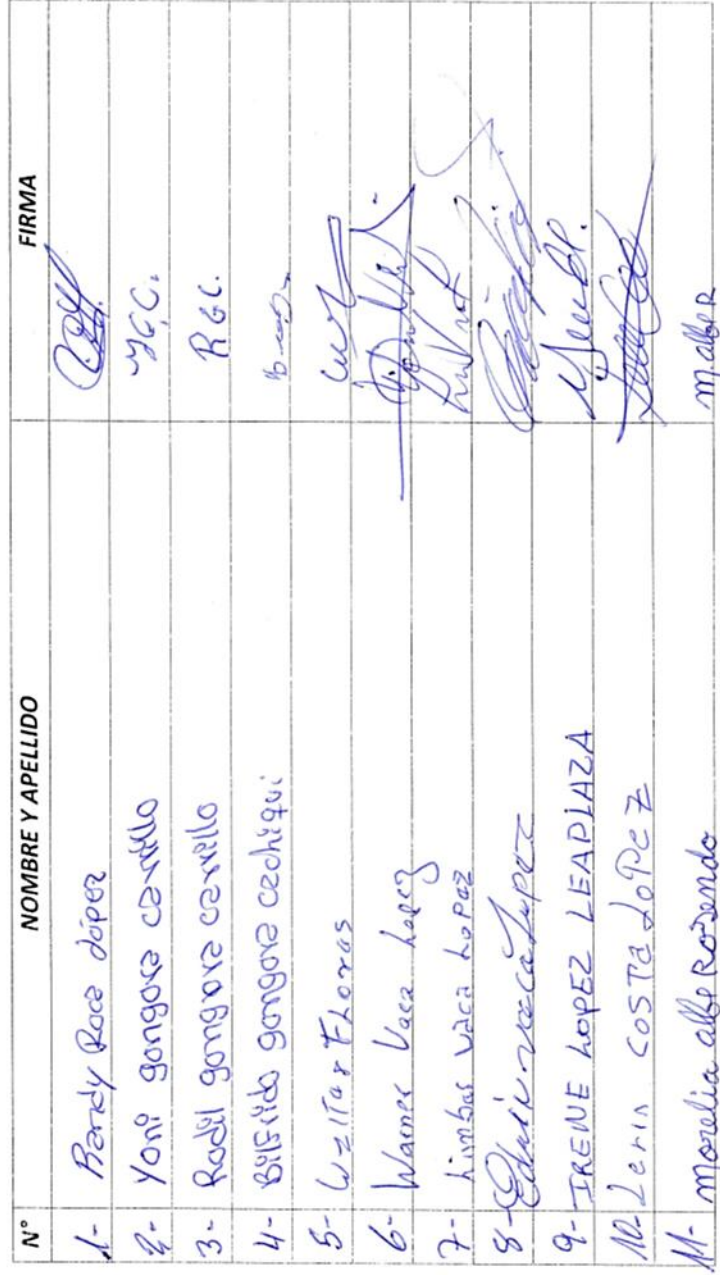 N° NOMBRE Y APELLIDO FIRMA
1- Bandy Roca López
2- Yoni gongora carrillo YGC.
3- Rodil gongora carrillo RGC.
4- Bilfrido gongora cachiqui
5- Walter Flores
6- Warner Vaca Lopez
7- Limbar vaca Lopez
8- Edwin vaca Lopez
9- IRENE LOPEZ LEAPLAZA
10- Lerin COSTA LOPEZ
11- Morelia albe Rosendo m.albeR